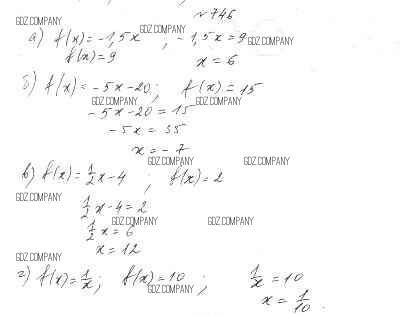 № 746
GDZ.COMPANY
а) f(x) = -1,5x GDZ.COMPANY , -1,5x = 9 GDZ.COMPANY
f(x) = 9 x = 6
GDZ.COMPANY
б) f(x) = -5x - 20 ; f(x) = 15
GDZ.COMPANY GDZ.COMPANY
-5x - 20 = 15
-5x = 35
x = -7
GDZ.COMPANY GDZ.COMPANY
в) f(x) = 1/2 x - 4 ; f(x) = 2
GDZ.COMPANY
1/2 x - 4 = 2
GDZ.COMPANY GDZ.COMPANY
1/2 x = 6
x = 12
GDZ.COMPANY
г) f(x) = 1/x ; f(x) = 10 ; 1/x = 10
GDZ.COMPANY
x = 1/10 .